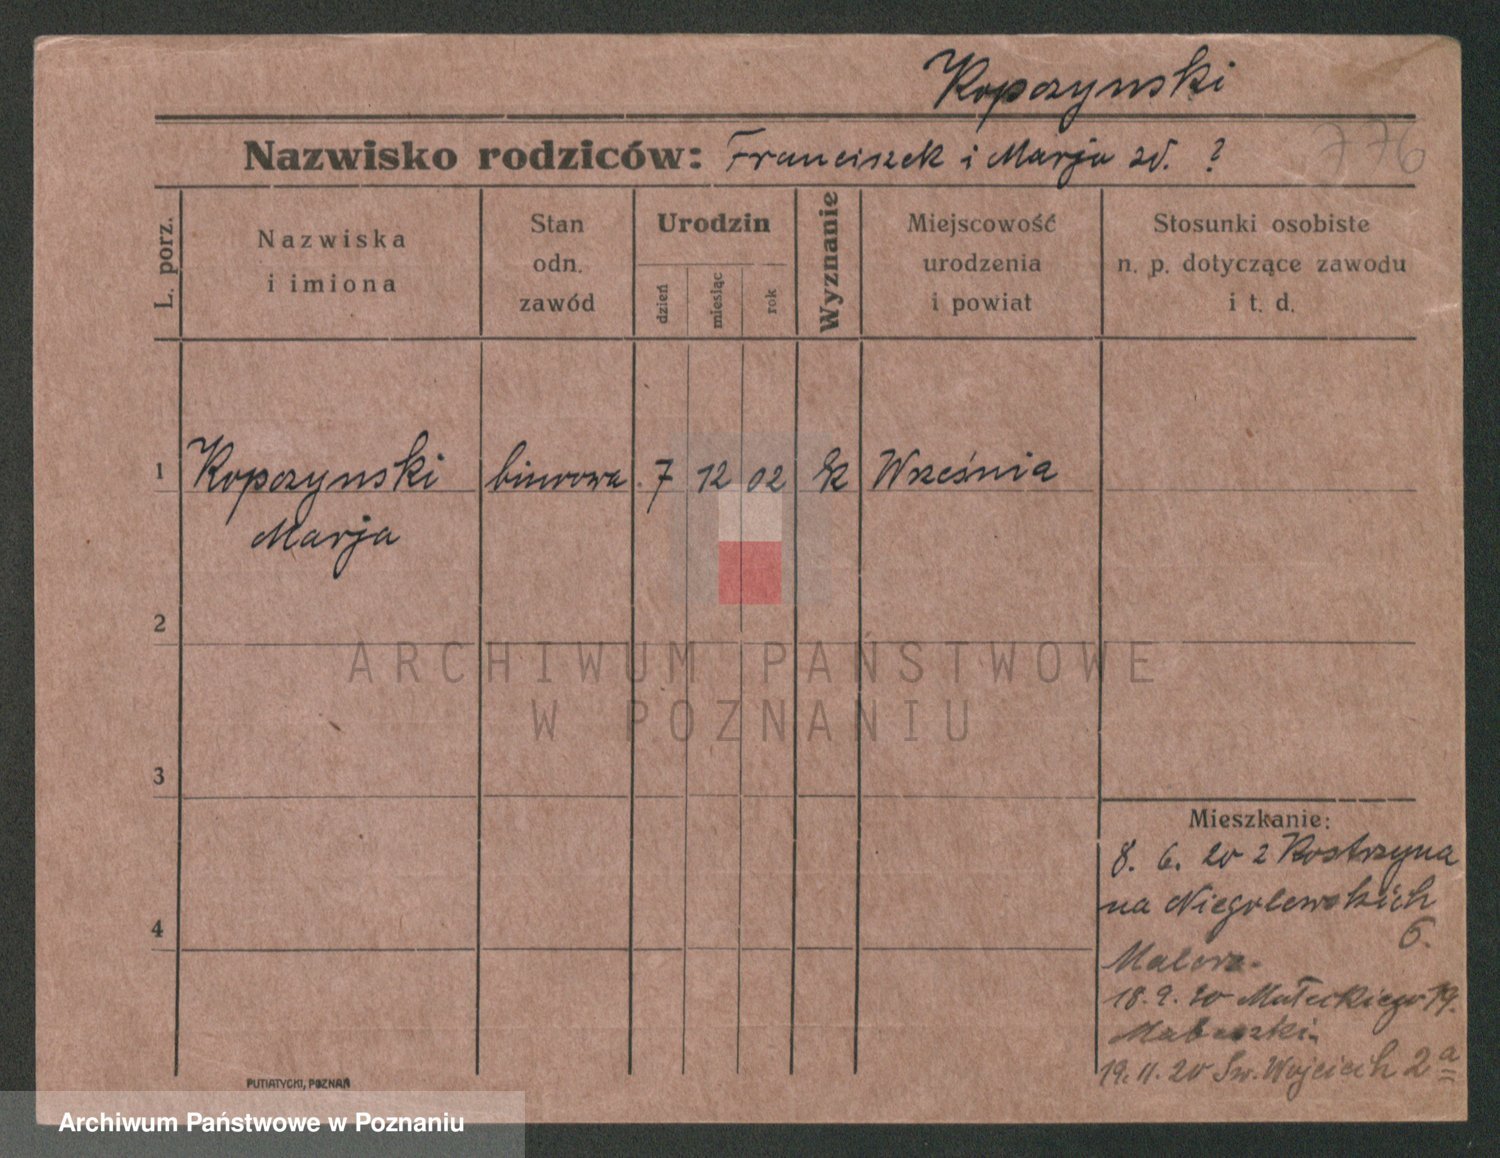 Kopczynski
Nazwisko rodziców: Franciszek i Marja zd. ?
776
L. porz.
Nazwiska
i imiona
Stan
odn.
zawód
Urodzin
dzień
miesiąc
rok
Wyznanie
Miejscowość
urodzenia
i powiat
Stosunki osobiste
n. p. dotyczące zawodu
i t. d.
1 Kopczynski biurowa 7 12 02 rk Września
Marja
2
ARCHIWUM PAŃSTWOWE
W POZNANIU
3
4
Mieszkanie:
8. 6. 20 z Kostrzyna
na Niegolewskich
6.
18. 9. 20 Małeckiego 19.
19. 11. 20 Św. Wojciech 2a
PUTIATYCKI, POZNAŃ
Archiwum Państwowe w Poznaniu